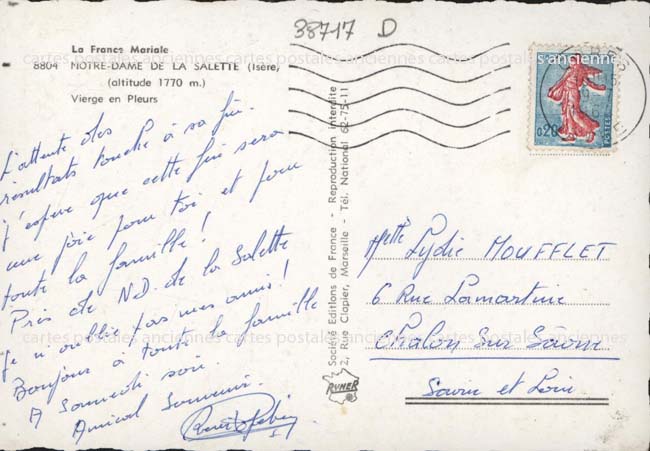 38717 D
La France Mariale
8804 NOTRE-DAME DE LA SALETTE (Isère)
(altitude 1770 m.)
Vierge en Pleurs
cartes postales anciennes cartes postales anciennes cartes postales anciennes
0,20
POSTES
L'attente des
résultats touche à sa fin.
j'espère que cette fois sera
une joie pour toi et pour
toute la famille!
Près de N.D. de la Salette
je n'oublie pas mes amis!
Bonjour à toute la famille
A Samedi soir
Amical Souvenir.
Société Editions de France - Reproduction interdite
2, Rue Clapier, Marseille - Tél. National 62-75-11
RYNER
Melle Lydie MOUFFLET
6 Rue Lamartine
Chalon Sur Saone
Saone et Loire
cartes postales anciennes cartes postales anciennes cartes postales anciennes